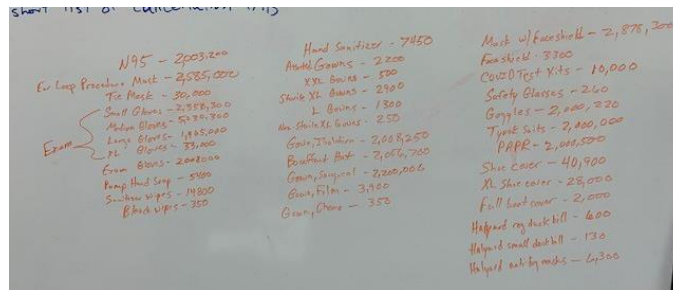 Short list of
N95 - 2,003,200
Ear Loop Procedure Mask - 2,585,000
Tie Mask - 30,000
Exam
Small Gloves - 2,358,300
Medium Gloves -
Large Gloves - 1,865,000
XL Gloves - 33,000
Exam Gloves - 2008000
Pump Hand Soap - 5400
Sanitizer wipes - 14800
Bleach wipes - 350
Hand Sanitizer - 7450
Gowns - 2200
XXL Gowns - 500
Sterile XL Gowns - 2900
L Gowns - 1300
Non-Sterile XL Gowns - 250
Gown, Isolation - 2,008,250
Bouffant - 2,056,700
Gown, Surgical - 2,200,006
Gown, Film - 3,900
Gown, Chemo - 350
Mask w/ Faceshield - 2,878,300
Faceshield - 3300
COVID Test Kits - 10,000
Safety Glasses - 260
Goggles - 2,000,220
Tyvek Suits - 2,000,000
PAPR - 2,000,500
Shoe cover - 40,900
XL Shoe cover - 28,000
Full boot cover - 2,000
Halyard reg duckbill - 600
Halyard small duckbill - 130
Halyard anti-fog masks - 6,300